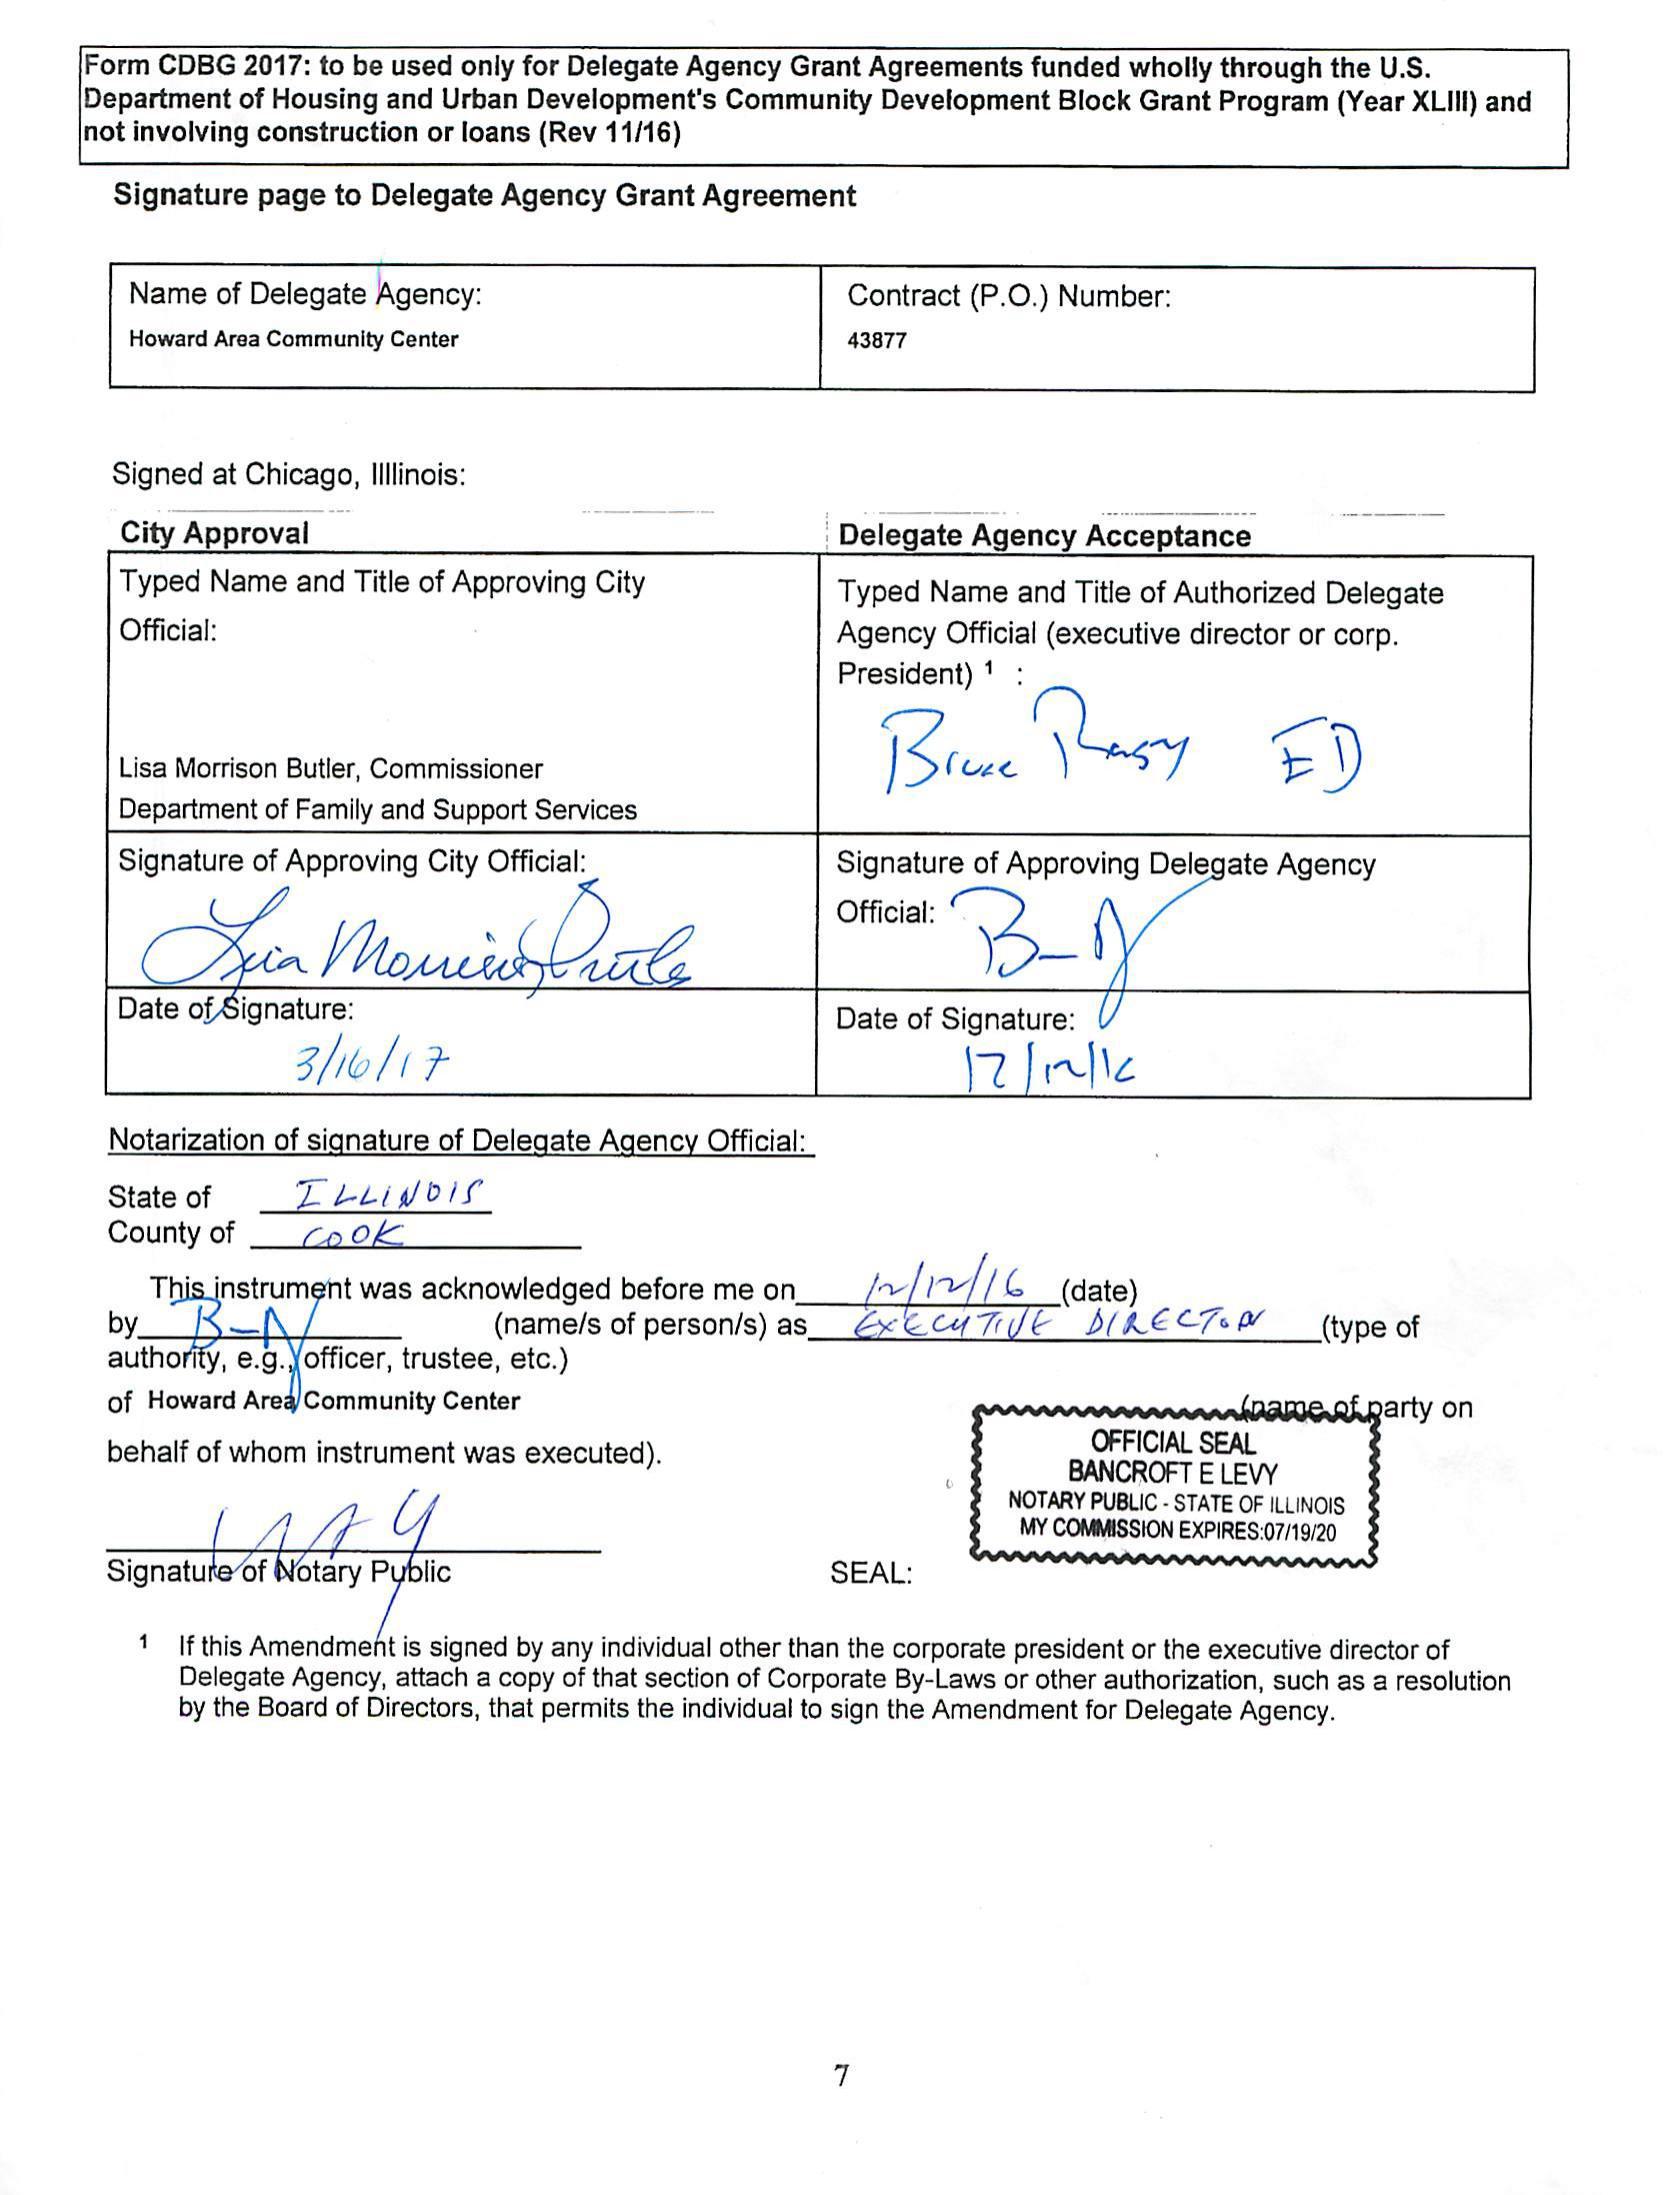 Form CDBG 2017: to be used only for Delegate Agency Grant Agreements funded wholly through the U.S.
Department of Housing and Urban Development's Community Development Block Grant Program (Year XLIII) and
not involving construction or loans (Rev 11/16)
Signature page to Delegate Agency Grant Agreement
Name of Delegate Agency:
Howard Area Community Center
Contract (P.O.) Number:
43877
Signed at Chicago, Illlinois:
City Approval
Typed Name and Title of Approving City
Official:
Lisa Morrison Butler, Commissioner
Department of Family and Support Services
Signature of Approving City Official:
Lisa Morrison Butler
Date of Signature:
3/16/17
Delegate Agency Acceptance
Typed Name and Title of Authorized Delegate
Agency Official (executive director or corp.
President) 1 :
Bruce ED
Signature of Approving Delegate Agency
Official:
Date of Signature:
12/12/16
Notarization of signature of Delegate Agency Official:
State of ILLINOIS
County of COOK
This instrument was acknowledged before me on 12/12/16 (date)
by (name/s of person/s) as EXECUTIVE DIRECTOR (type of
authority, e.g., officer, trustee, etc.)
of Howard Area Community Center (name of party on
behalf of whom instrument was executed).
OFFICIAL SEAL
BANCROFT E LEVY
NOTARY PUBLIC - STATE OF ILLINOIS
MY COMMISSION EXPIRES:07/19/20
Signature of Notary Public SEAL:
1 If this Amendment is signed by any individual other than the corporate president or the executive director of
Delegate Agency, attach a copy of that section of Corporate By-Laws or other authorization, such as a resolution
by the Board of Directors, that permits the individual to sign the Amendment for Delegate Agency.
7